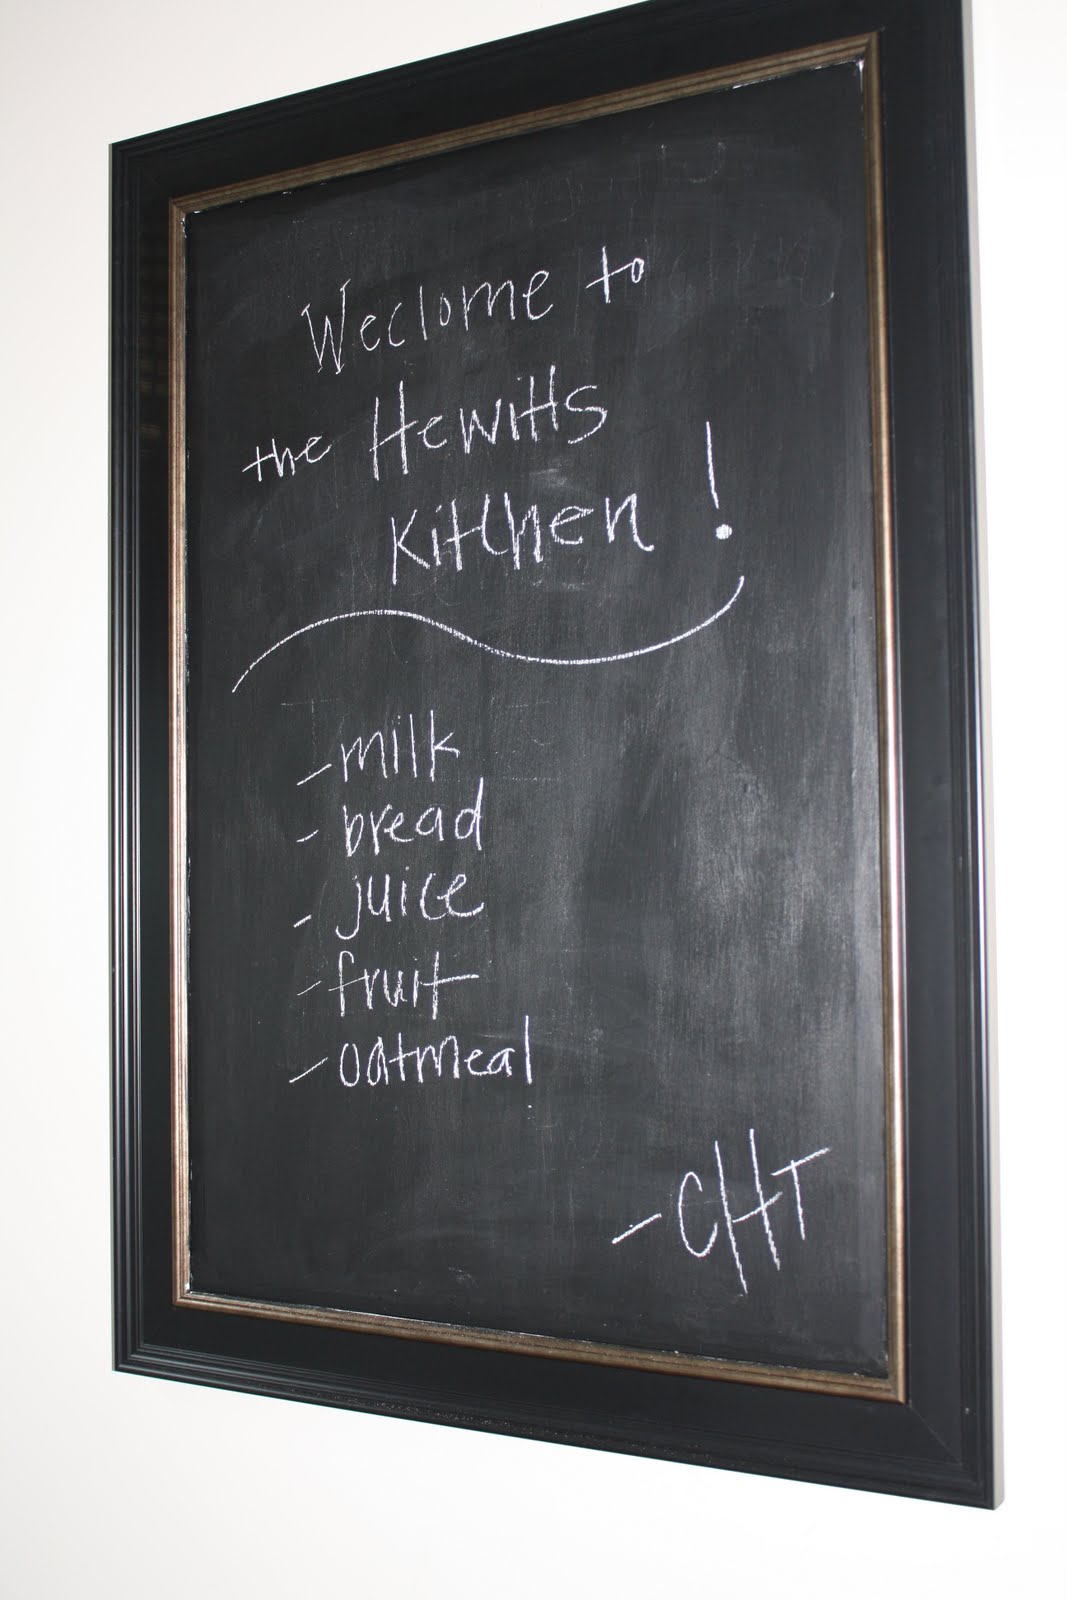 Weclome to
the Hewitts
Kitchen!
- milk
- bread
- juice
- fruit
- oatmeal
- CHT